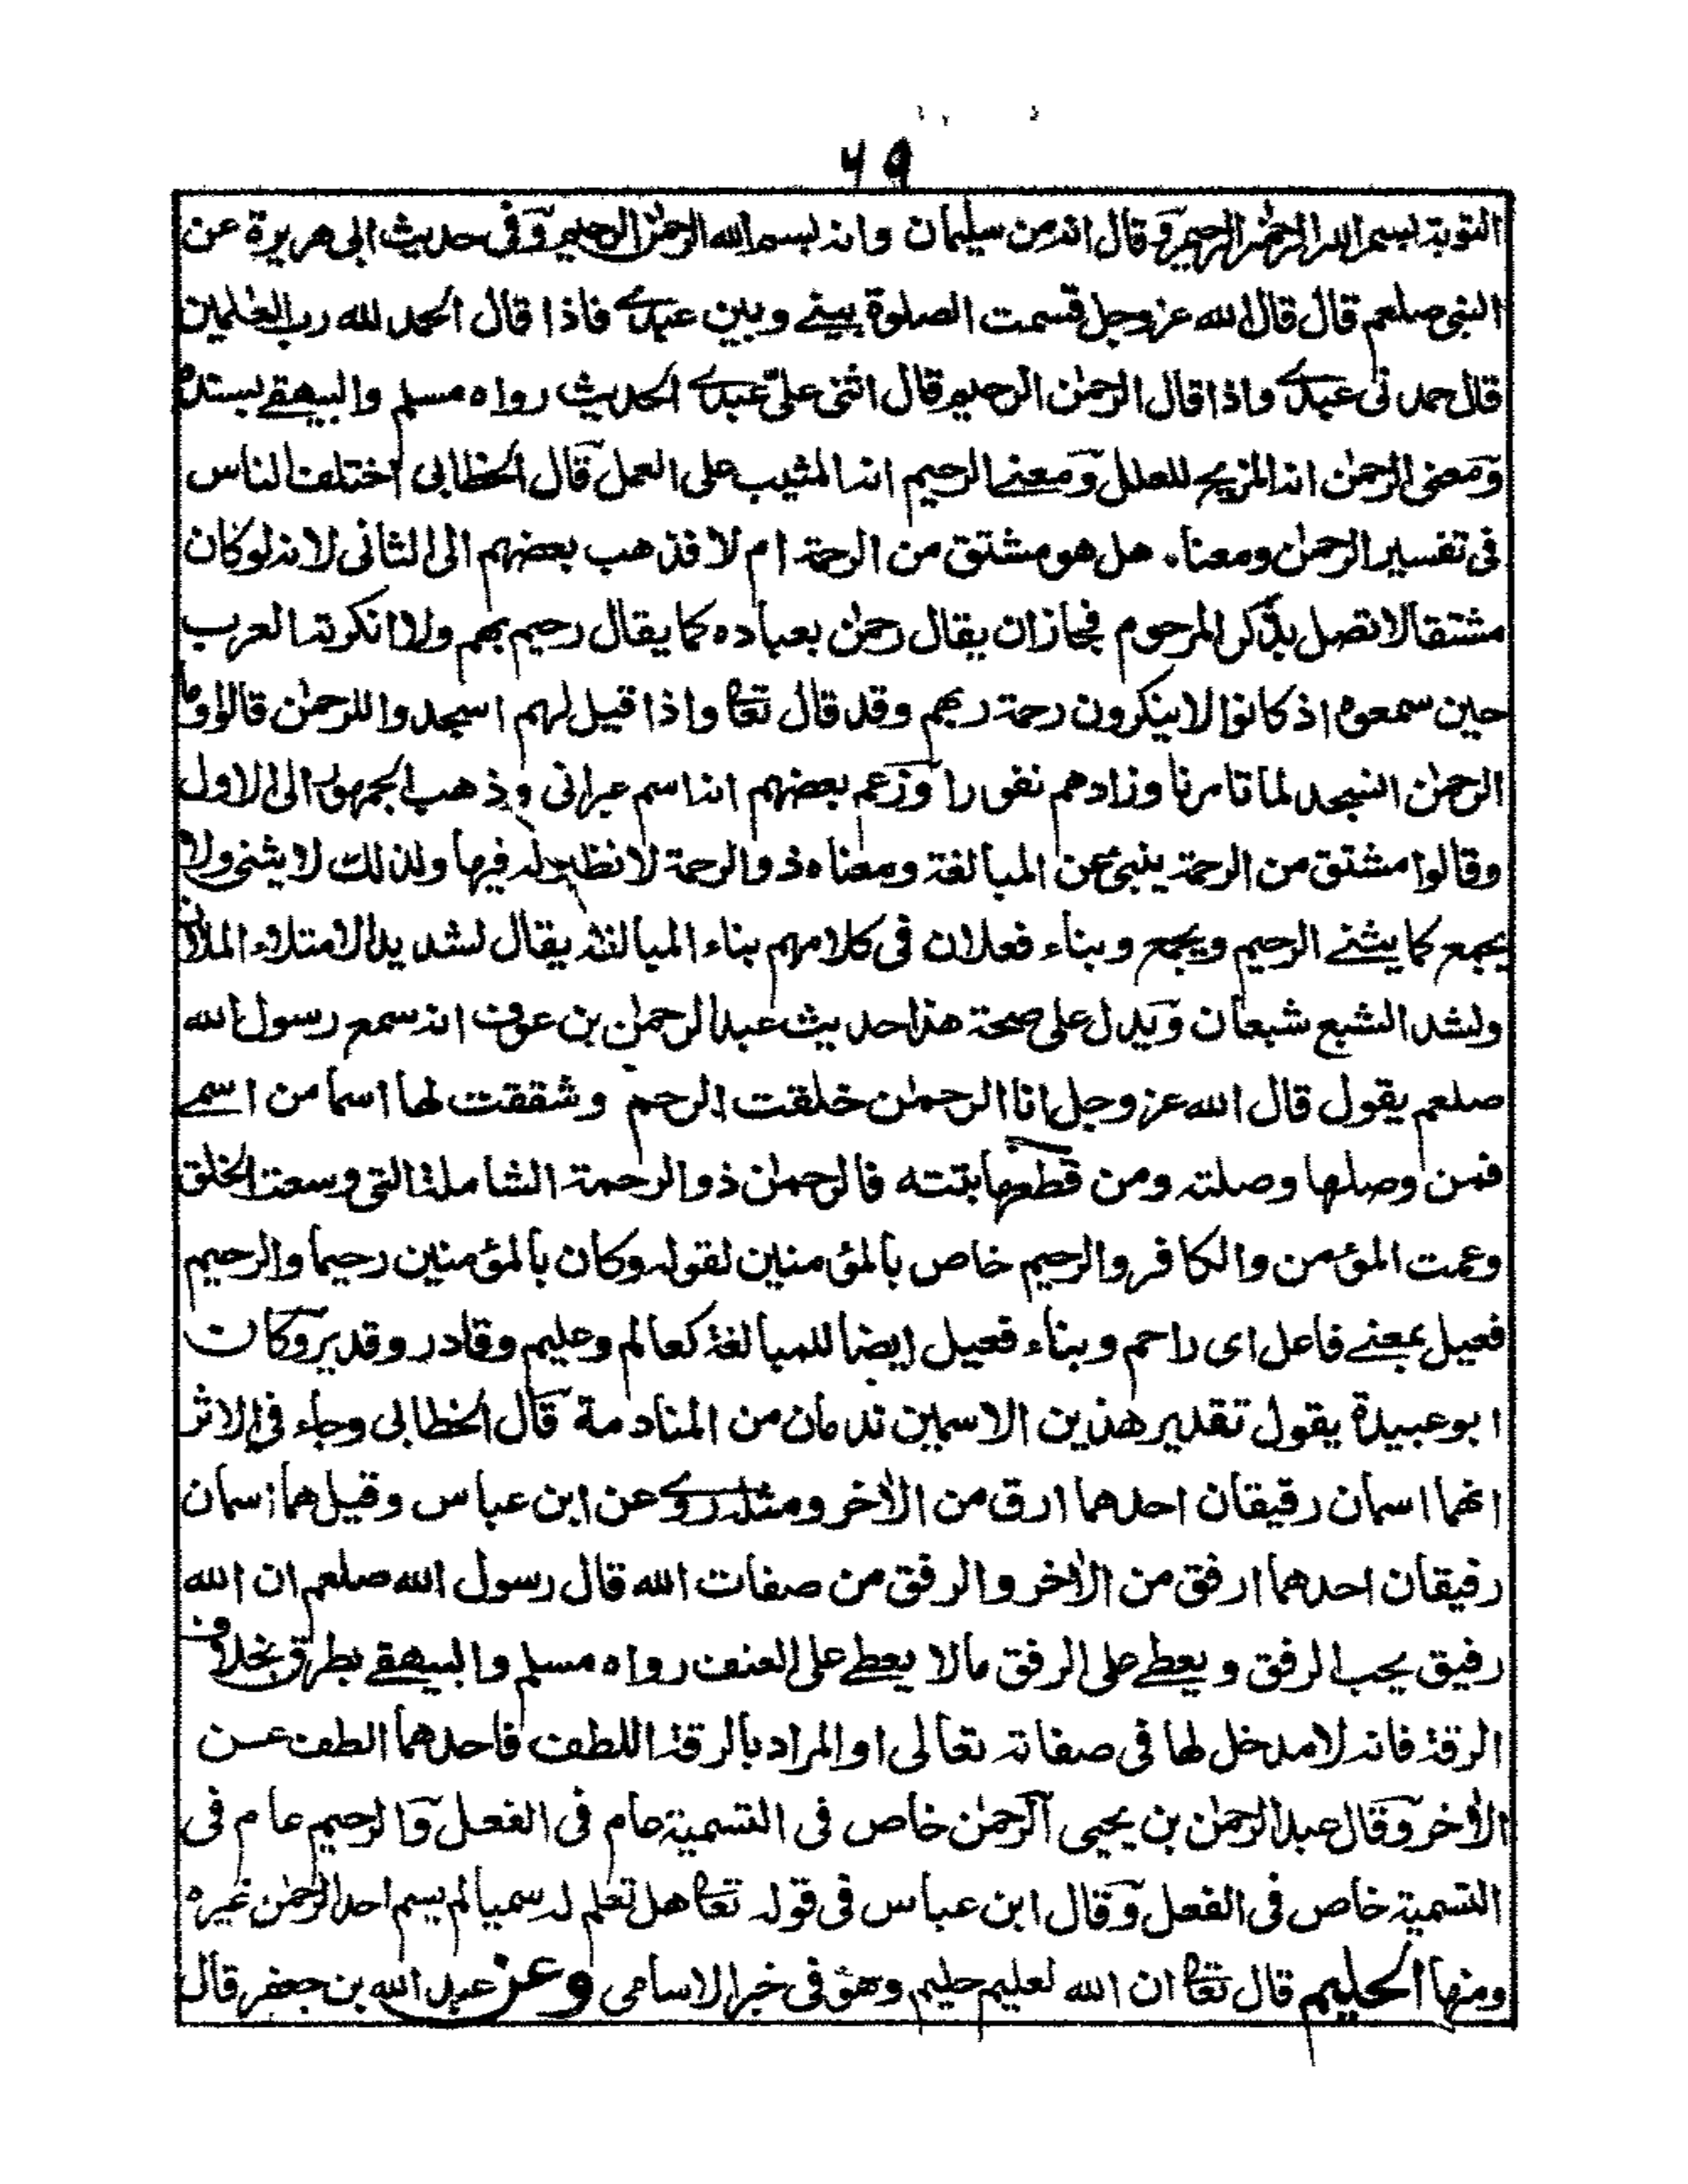 ٦٩
التوبة بسم الله الرحمن الرحيم وقال انه من سليمان وانه بسم الله الرحمن الرحيم وفى حديث ابى هريرة عن
النبى صلعم قال قال الله عز وجل قسمت الصلوة بينے وبين عبدے فاذا قال الحمد لله رب العلمين
قال حمدنى عبدے واذا قال الرحمن الرحيم قال اثنى علىّ عبدے الحديث رواه مسلم والبيهقے بسنده
ومعنى الرحمن انه المزيح للعلل ومعنے الرحيم انه المثيب على العمل قال الخطابى اختلف الناس
فى تفسير الرحمن ومعناه هل هو مشتق من الرحمة ام لا فذهب بعضهم الى الثانى لانه لو كان
مشتقا لاتصل بذكر المرحوم فجاز ان يقال رحمن بعباده كما يقال رحيم بهم ولا انكرته العرب
حين سمعوه اذ كانوا لا ينكرون رحمة ربهم وقد قال تعا واذا قيل لهم اسجدوا للرحمن قالوا وما
الرحمن انسجد لما تامرنا وزادهم نفورا وزعم بعضهم انه اسم عبرانى وذهب الجمهور الى الاول
وقالوا مشتق من الرحمة ينبئ عن المبالغة ومعناه ذو الرحمة لا نظير له فيها ولذلك لا يثنى ولا
يجمع كما يثنے الرحيم ويجمع وبناء فعلان فى كلامهم بناء المبالغة يقال لشديد الامتلاء الملآن
ولشد الشبع شبعان ويدل على صحة هذا حديث عبد الرحمن بن عوف انه سمع رسول الله
صلعم يقول قال الله عز وجل انا الرحمن خلقت الرحم وشققت لها اسما من اسمے
فمن وصلها وصلته ومن قطعها بتته فالرحمن ذو الرحمة الشاملة التى وسعت الخلق
وعمت المؤمن والكافر والرحيم خاص بالمؤمنين لقوله وكان بالمؤمنين رحيما والرحيم
فعيل بمعنے فاعل اى راحم وبناء فعيل ايضا للمبالغة كعالم وعليم وقادر وقدير وكان
ابو عبيدة يقول تقدير هذين الاسمين ندمان من المنادمة قال الخطابى وجاء فى الاثر
انهما اسمان رقيقان احدهما ارق من الآخر ومثله روے عن ابن عباس وقيل هما اسمان
رفيقان احدهما ارفق من الآخر والرفق من صفات الله قال رسول الله صلعم ان الله
رفيق يحب الرفق ويعطے على الرفق مالا يعطے على العنف رواه مسلم والبيهقے بطرق بخلاف
الرقة فانه لا مدخل لها فى صفاته تعالى او المراد بالرقة اللطف فاحدهما الطف عن
الآخر وقال عبد الرحمن بن يحيى الرحمن خاص فى التسمية عام فى الفعل والرحيم عام فى
التسمية خاص فى الفعل وقال ابن عباس فى قوله تعا هل تعلم له سميا لم يسم احد الرحمن غيره
ومنها الحليم قال تعا ان الله لعليم حليم وهو فى خبر الاسامى وعن عبد الله بن جعفر قال